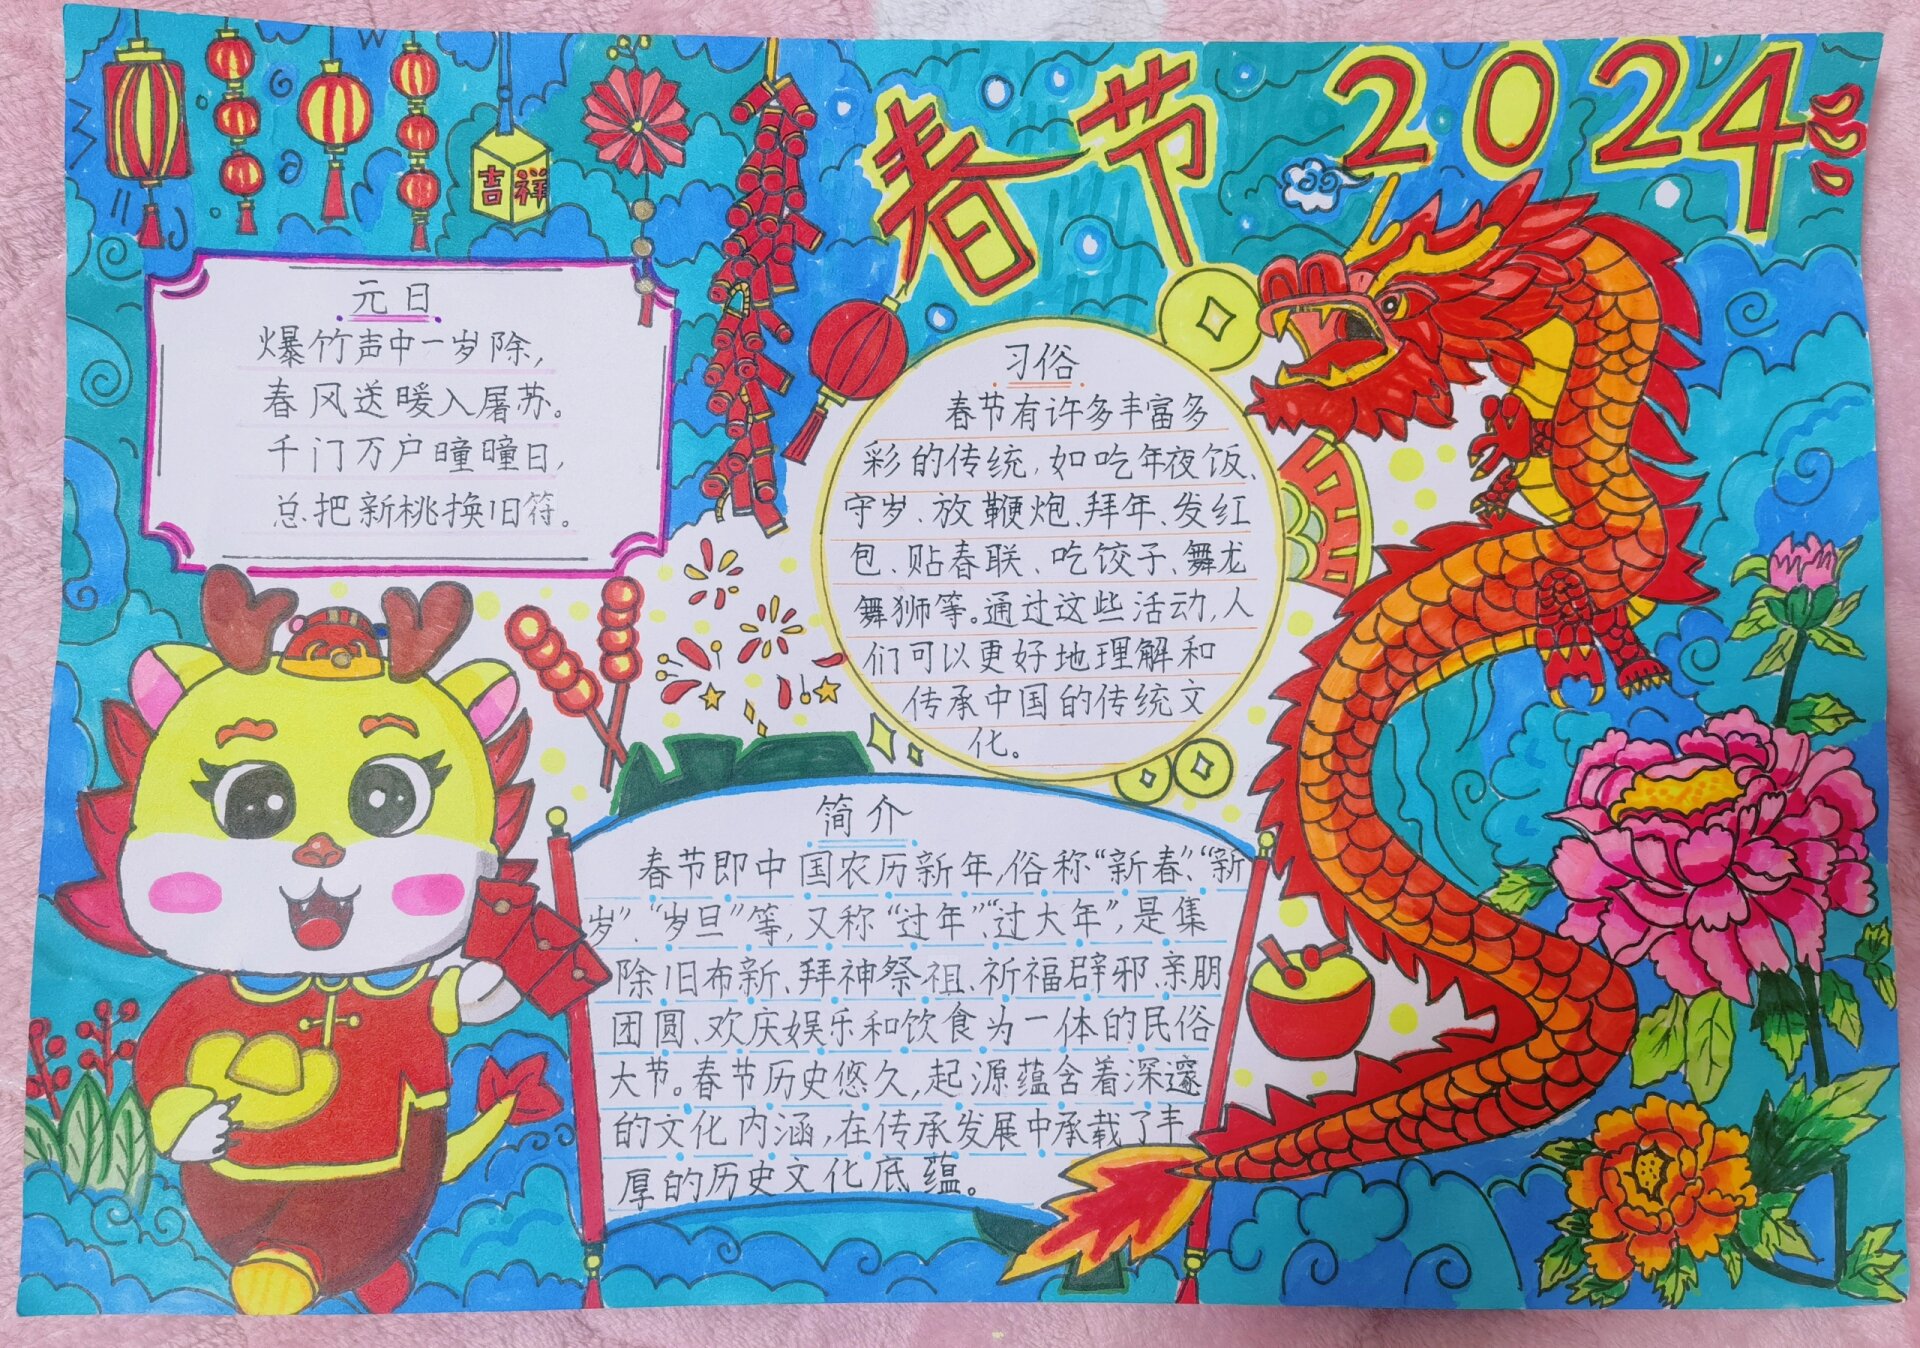 春节 2024
吉祥
元日
爆竹声中一岁除,
春风送暖入屠苏。
千门万户曈曈日,
总把新桃换旧符。
习俗
春节有许多丰富多
彩的传统,如吃年夜饭、
守岁、放鞭炮、拜年、发红
包、贴春联、吃饺子、舞龙
舞狮等。通过这些活动,人
们可以更好地理解和
传承中国的传统文
化。
简介
春节即中国农历新年,俗称“新春”、“新
岁”、“岁旦”等,又称“过年”、“过大年”,是集
除旧布新、拜神祭祖、祈福辟邪、亲朋
团圆、欢庆娱乐和饮食为一体的民俗
大节。春节历史悠久,起源蕴含着深邃
的文化内涵,在传承发展中承载了丰
厚的历史文化底蕴。